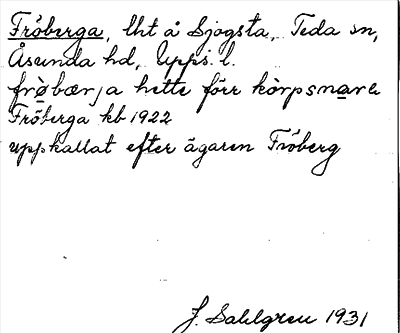 Fröberga, lht å Sjögsta, Teda sn,
Åsunda hd, Upps. l.
frò̤bærja hette förr kòrpsnare
Fröberga kb 1922
uppkallat efter ägaren Fröberg
J. Sahlgren 1931